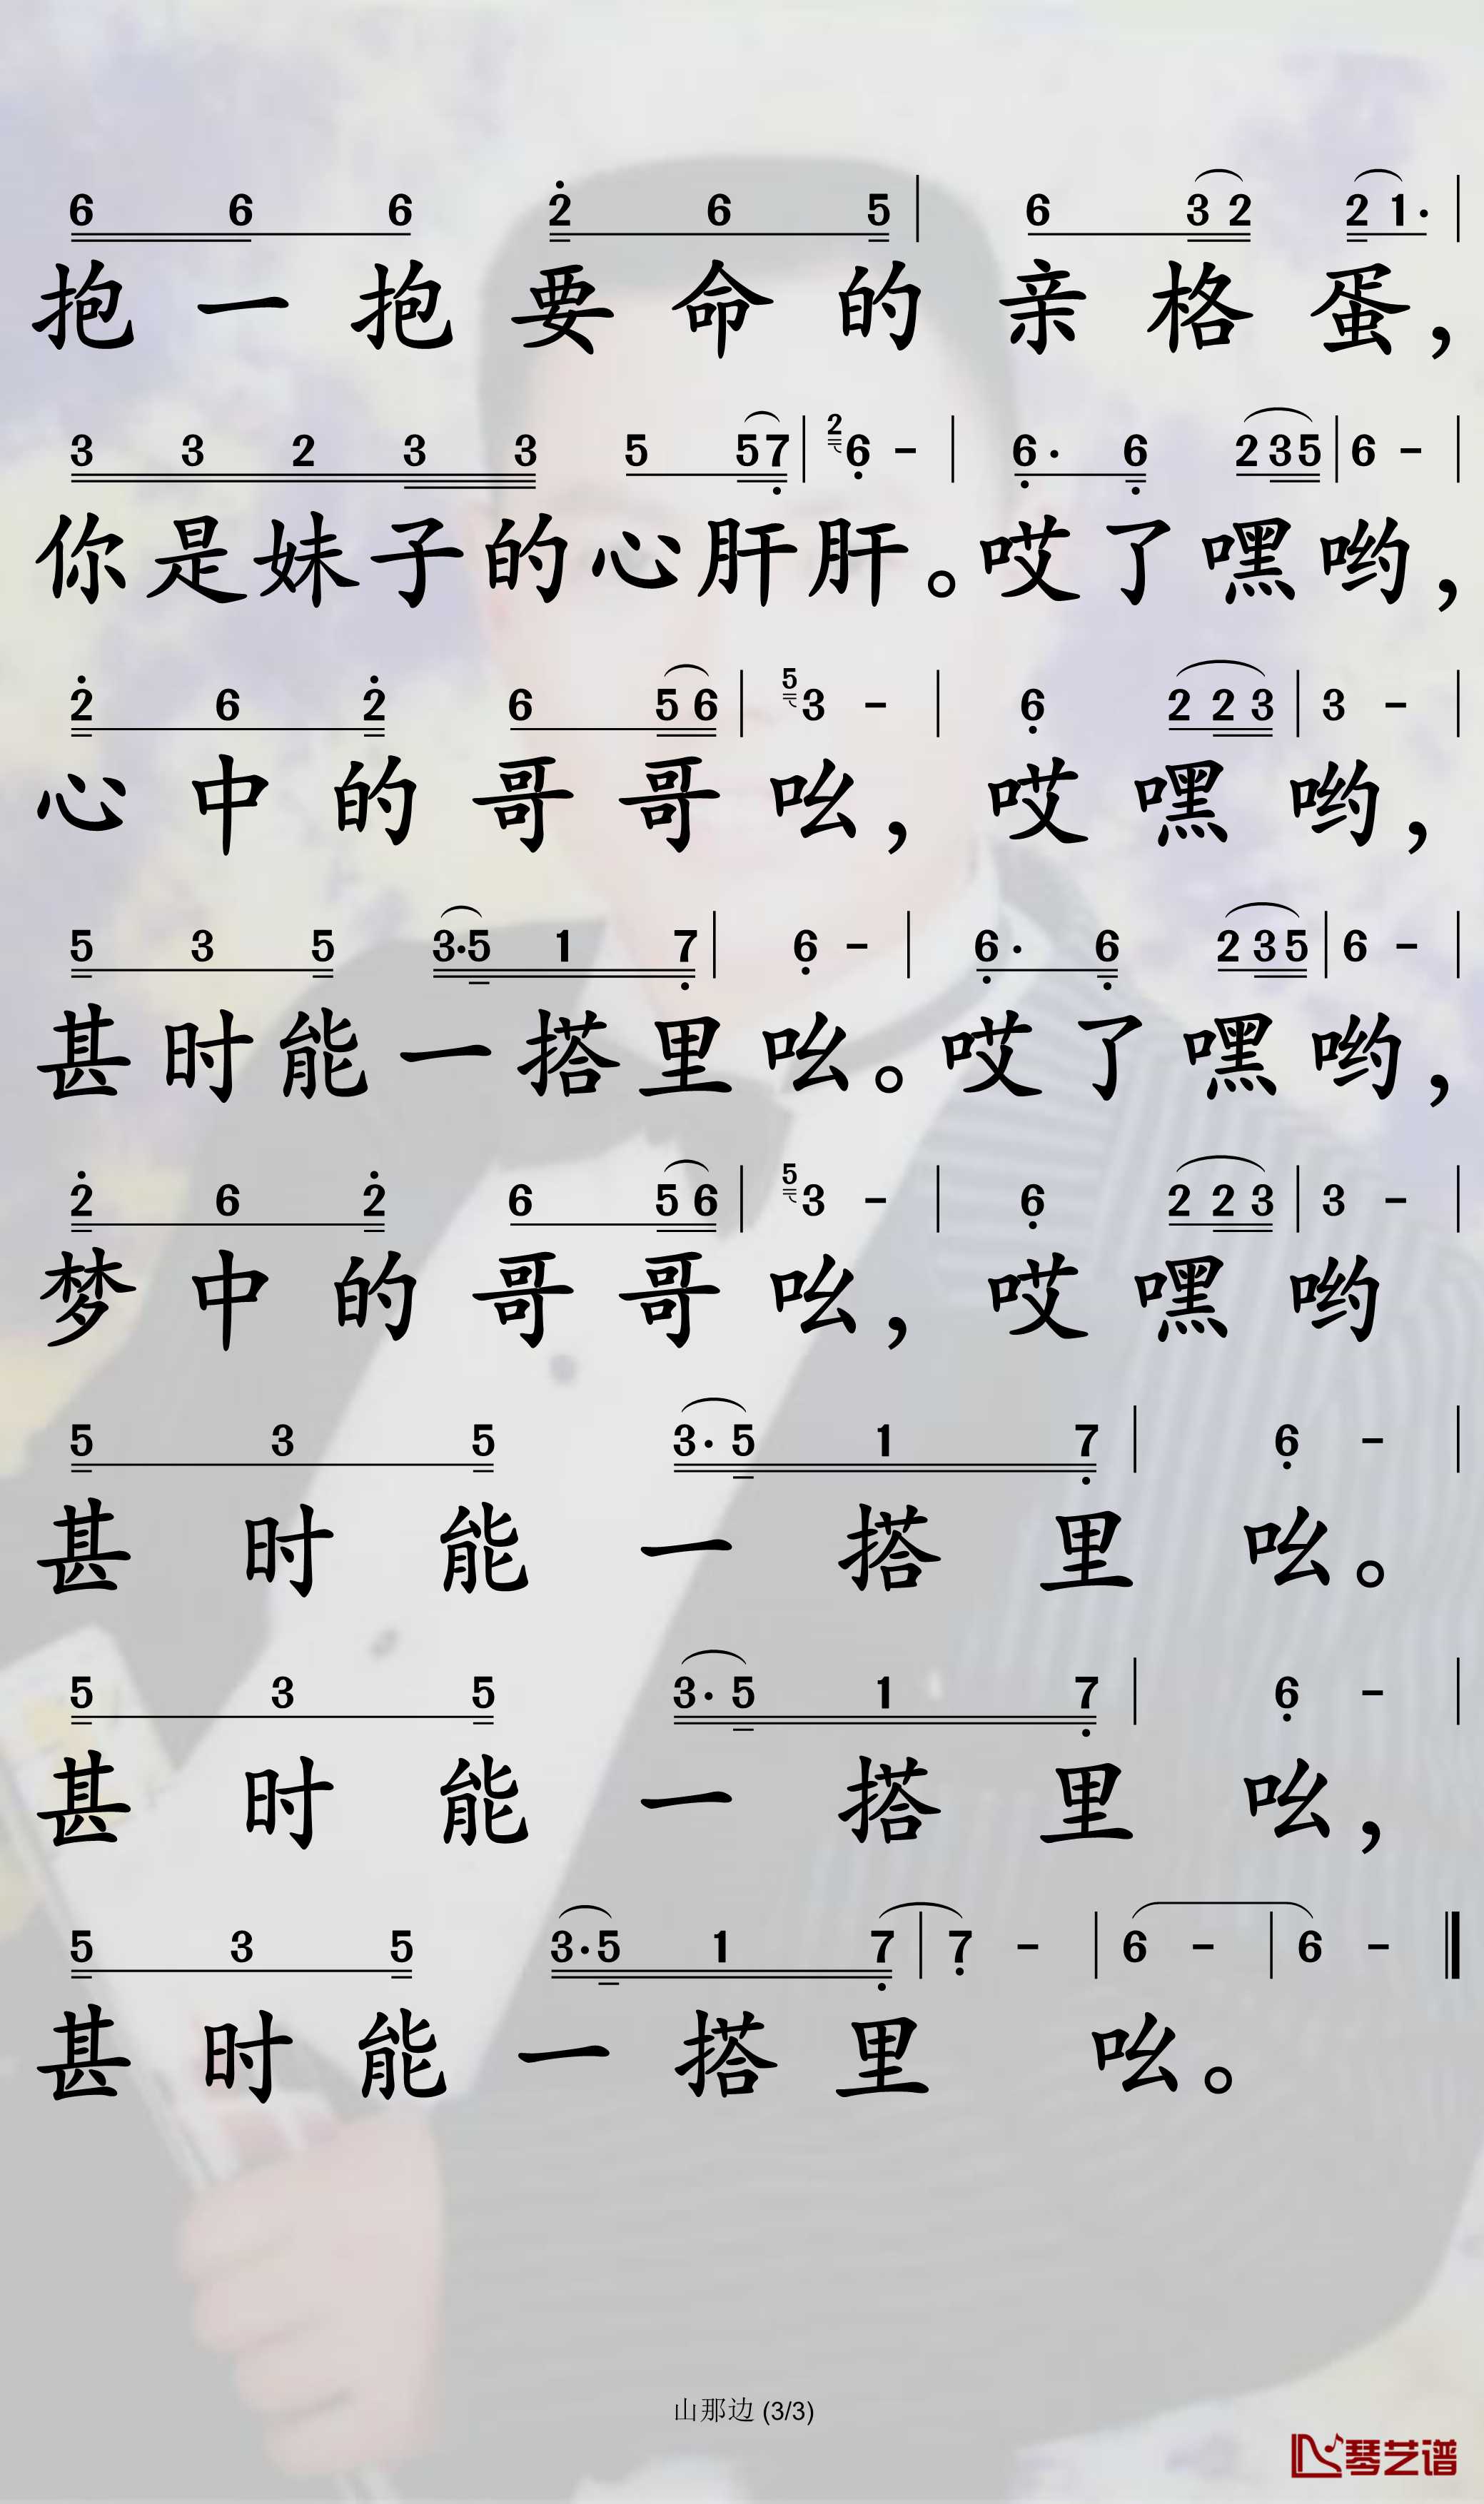 6 6 6 2 6 5 | 6 3 2 2 1· |
抱一抱要命的亲格蛋，
3 3 2 3 3 5 5 7 | 2 6 - | 6· 6 2 3 5 | 6 - |
你是妹子的心肝肝。哎了嘿哟，
2 6 2 6 5 6 | 5 3 - | 6 2 2 3 | 3 - |
心中的哥哥吆，哎嘿哟，
5 3 5 3·5 1 7 | 6 - | 6· 6 2 3 5 | 6 - |
甚时能一搭里吆。哎了嘿哟，
2 6 2 6 5 6 | 5 3 - | 6 2 2 3 | 3 - |
梦中的哥哥吆，哎嘿哟
5 3 5 3·5 1 7 | 6 - |
甚时能一搭里吆。
5 3 5 3·5 1 7 | 6 - |
甚时能一搭里吆，
5 3 5 3·5 1 7 | 7 - | 6 - | 6 - ‖
甚时能一搭里吆。
山那边 (3/3)
琴艺谱